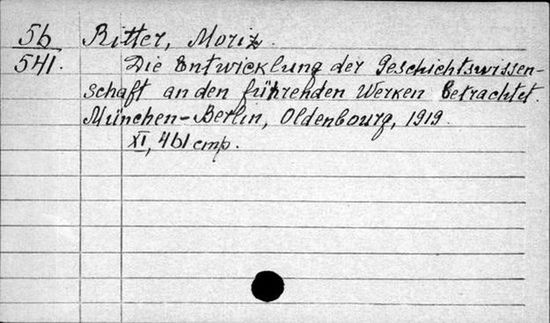 56 Ritter, Moriz.
541. Die Entwicklung der Geschichtswissen-
schaft an den führenden Werken betrachtet.
München-Berlin, Oldenbourg, 1919.
XI, 461 стр.